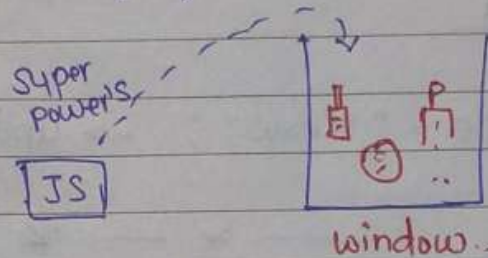 super
powers
JS
window.